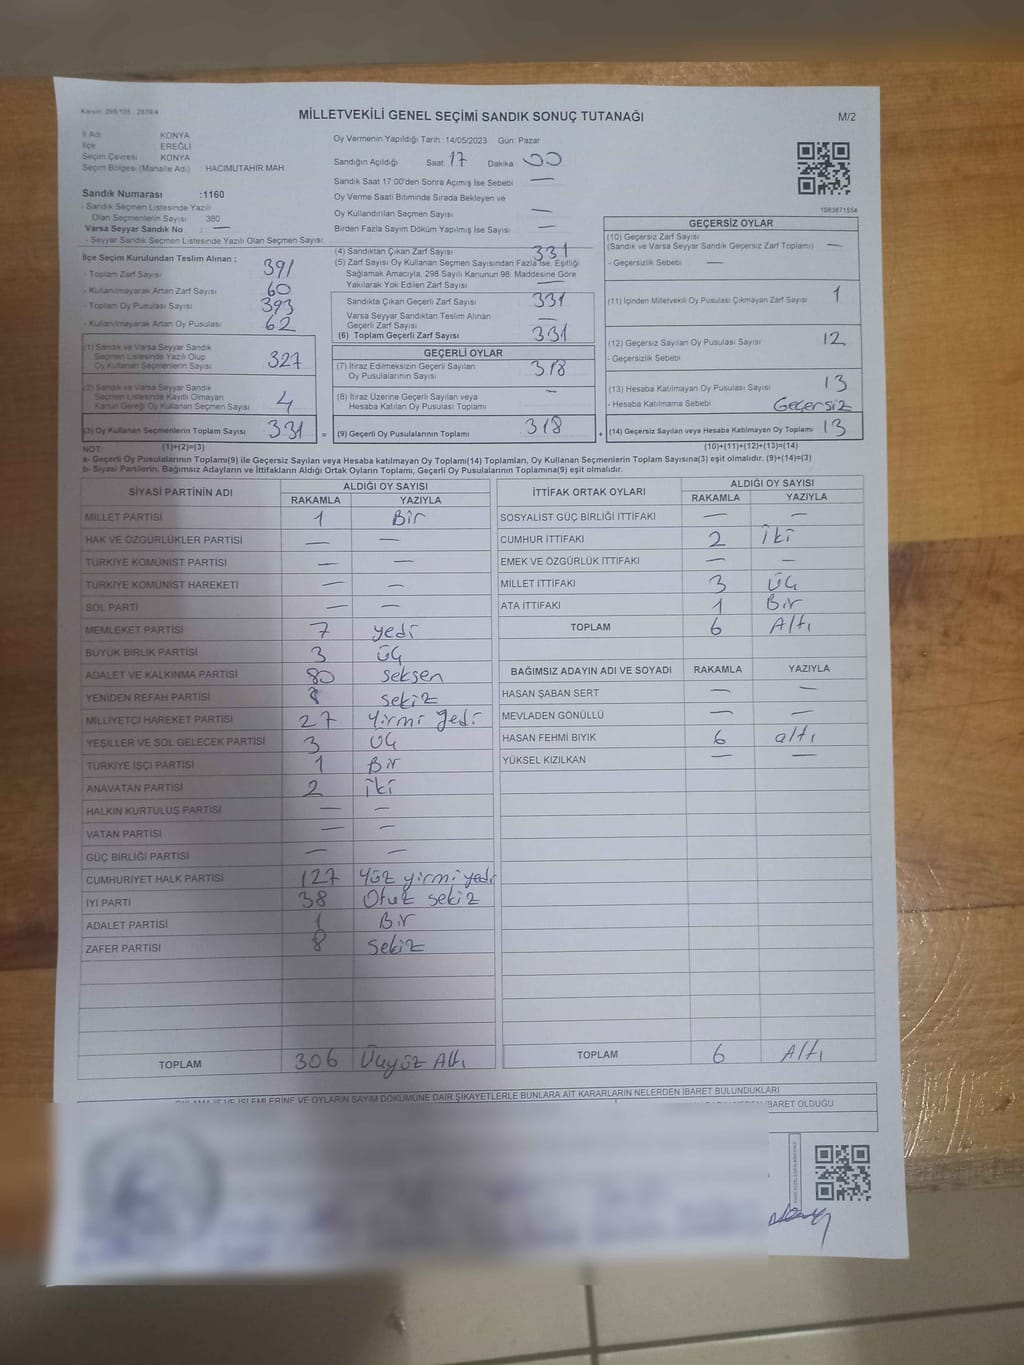 MİLLETVEKİLİ GENEL SEÇİMİ SANDIK SONUÇ TUTANAĞI
M/2
İl Adı KONYA
İlçe EREĞLİ
Seçim Çevresi KONYA
Seçim Bölgesi (Mahalle Adı) HACIMUTAHİR MAH.
Sandık Numarası :1160
- Sandık Seçmen Listesinde Yazılı
Olan Seçmenlerin Sayısı 380
Varsa Seyyar Sandık No : —
- Seyyar Sandık Seçmen Listesinde Yazılı Olan Seçmen Sayısı
Oy Vermenin Yapıldığı Tarih :14/05/2023 Gün: Pazar
Sandığın Açıldığı Saat 17 Dakika 00
Sandık Saat 17:00'den Sonra Açımış İse Sebebi —
Oy Verme Saati Bitiminde Sırada Bekleyen ve
Oy Kullandırılan Seçmen Sayısı —
Birden Fazla Sayım Döküm Yapılmış İse Sayısı —
1083871554
İlçe Seçim Kurulundan Teslim Alınan ;
- Toplam Zarf Sayısı 391
- Kullanılmayarak Artan Zarf Sayısı 60
- Toplam Oy Pusulası Sayısı 393
- Kullanılmayarak Artan Oy Pusulası 62
(1) Sandık ve Varsa Seyyar Sandık
Seçmen Listesinde Yazılı Olup
Oy Kullanan Seçmenlerin Sayısı 327
(2) Sandık ve Varsa Seyyar Sandık
Seçmen Listesinde Kayıtlı Olmayan
Kanun Gereği Oy Kullanan Seçmen Sayısı 4
(3) Oy Kullanan Seçmenlerin Toplam Sayısı 331 =
(4) Sandıktan Çıkan Zarf Sayısı 331
(5) Zarf Sayısı Oy Kullanan Seçmen Sayısından Fazla İse, Eşitliği
Sağlamak Amacıyla, 298 Sayılı Kanunun 98. Maddesine Göre
Yakılarak Yok Edilen Zarf Sayısı
Sandıkta Çıkan Geçerli Zarf Sayısı 331
Varsa Seyyar Sandıktan Teslim Alınan
Geçerli Zarf Sayısı —
(6) Toplam Geçerli Zarf Sayısı 331
GEÇERLİ OYLAR
(7) İtiraz Edilmeksizin Geçerli Sayılan
Oy Pusulalarının Sayısı 318
(8) İtiraz Üzerine Geçerli Sayılan veya
Hesaba Katılan Oy Pusulası Toplamı —
(9) Geçerli Oy Pusulalarının Toplamı 318 +
GEÇERSİZ OYLAR
(10) Geçersiz Zarf Sayısı
(Sandık ve Varsa Seyyar Sandık Geçersiz Zarf Toplamı) —
- Geçersizlik Sebebi —
(11) İçinden Milletvekili Oy Pusulası Çıkmayan Zarf Sayısı 1
(12) Geçersiz Sayılan Oy Pusulası Sayısı 12
- Geçersizlik Sebebi
(13) Hesaba Katılmayan Oy Pusulası Sayısı 13
- Hesaba Katılmama Sebebi Geçersiz
(14) Geçersiz Sayılan veya Hesaba Katılmayan Oy Toplamı 13
NOT: (1)+(2)=(3) (10)+(11)+(12)+(13)=(14)
a- Geçerli Oy Pusulalarının Toplamı(9) ile Geçersiz Sayılan veya Hesaba Katılmayan Oy Toplamı(14) Toplamları, Oy Kullanan Seçmenlerin Toplam Sayısına(3) eşit olmalıdır. (9)+(14)=(3)
b- Siyasi Partilerin, Bağımsız Adayların ve İttifakların Aldığı Ortak Oyların Toplamı, Geçerli Oy Pusulalarının Toplamına(9) eşit olmalıdır.
SİYASİ PARTİNİN ADI ALDIĞI OY SAYISI
RAKAMLA YAZIYLA
MİLLET PARTİSİ 1 Bir
HAK VE ÖZGÜRLÜKLER PARTİSİ — —
TÜRKİYE KOMÜNİST PARTİSİ — —
TÜRKİYE KOMÜNİST HAREKETİ — —
SOL PARTİ — —
MEMLEKET PARTİSİ 7 yedi
BÜYÜK BİRLİK PARTİSİ 3 üç
ADALET VE KALKINMA PARTİSİ 80 seksen
YENİDEN REFAH PARTİSİ 8 sekiz
MİLLİYETÇİ HAREKET PARTİSİ 27 yirmi yedi
YEŞİLLER VE SOL GELECEK PARTİSİ 3 üç
TÜRKİYE İŞÇİ PARTİSİ 1 Bir
ANAVATAN PARTİSİ 2 iki
HALKIN KURTULUŞ PARTİSİ — —
VATAN PARTİSİ — —
GÜÇ BİRLİĞİ PARTİSİ — —
CUMHURİYET HALK PARTİSİ 127 Yüz yirmi yedi
İYİ PARTİ 38 Otuz sekiz
ADALET PARTİSİ 1 Bir
ZAFER PARTİSİ 8 sekiz
TOPLAM 306 Üçyüz Altı
İTTİFAK ORTAK OYLARI ALDIĞI OY SAYISI
RAKAMLA YAZIYLA
SOSYALİST GÜÇ BİRLİĞİ İTTİFAKI — —
CUMHUR İTTİFAKI 2 iki
EMEK VE ÖZGÜRLÜK İTTİFAKI — —
MİLLET İTTİFAKI 3 üç
ATA İTTİFAKI 1 Bir
TOPLAM 6 Altı
BAĞIMSIZ ADAYIN ADI VE SOYADI RAKAMLA YAZIYLA
HASAN ŞABAN SERT — —
MEVLADEN GÖNÜLLÜ — —
HASAN FEHMİ BIYIK 6 altı
YÜKSEL KIZILKAN — —
TOPLAM 6 Altı
VE OYLARIN SAYIM DÖKÜMÜNE DAİR ŞİKAYETLERLE BUNLARA AİT KARARLARIN NELERDEN İBARET BULUNDUKLARI
İBARET OLDUĞU